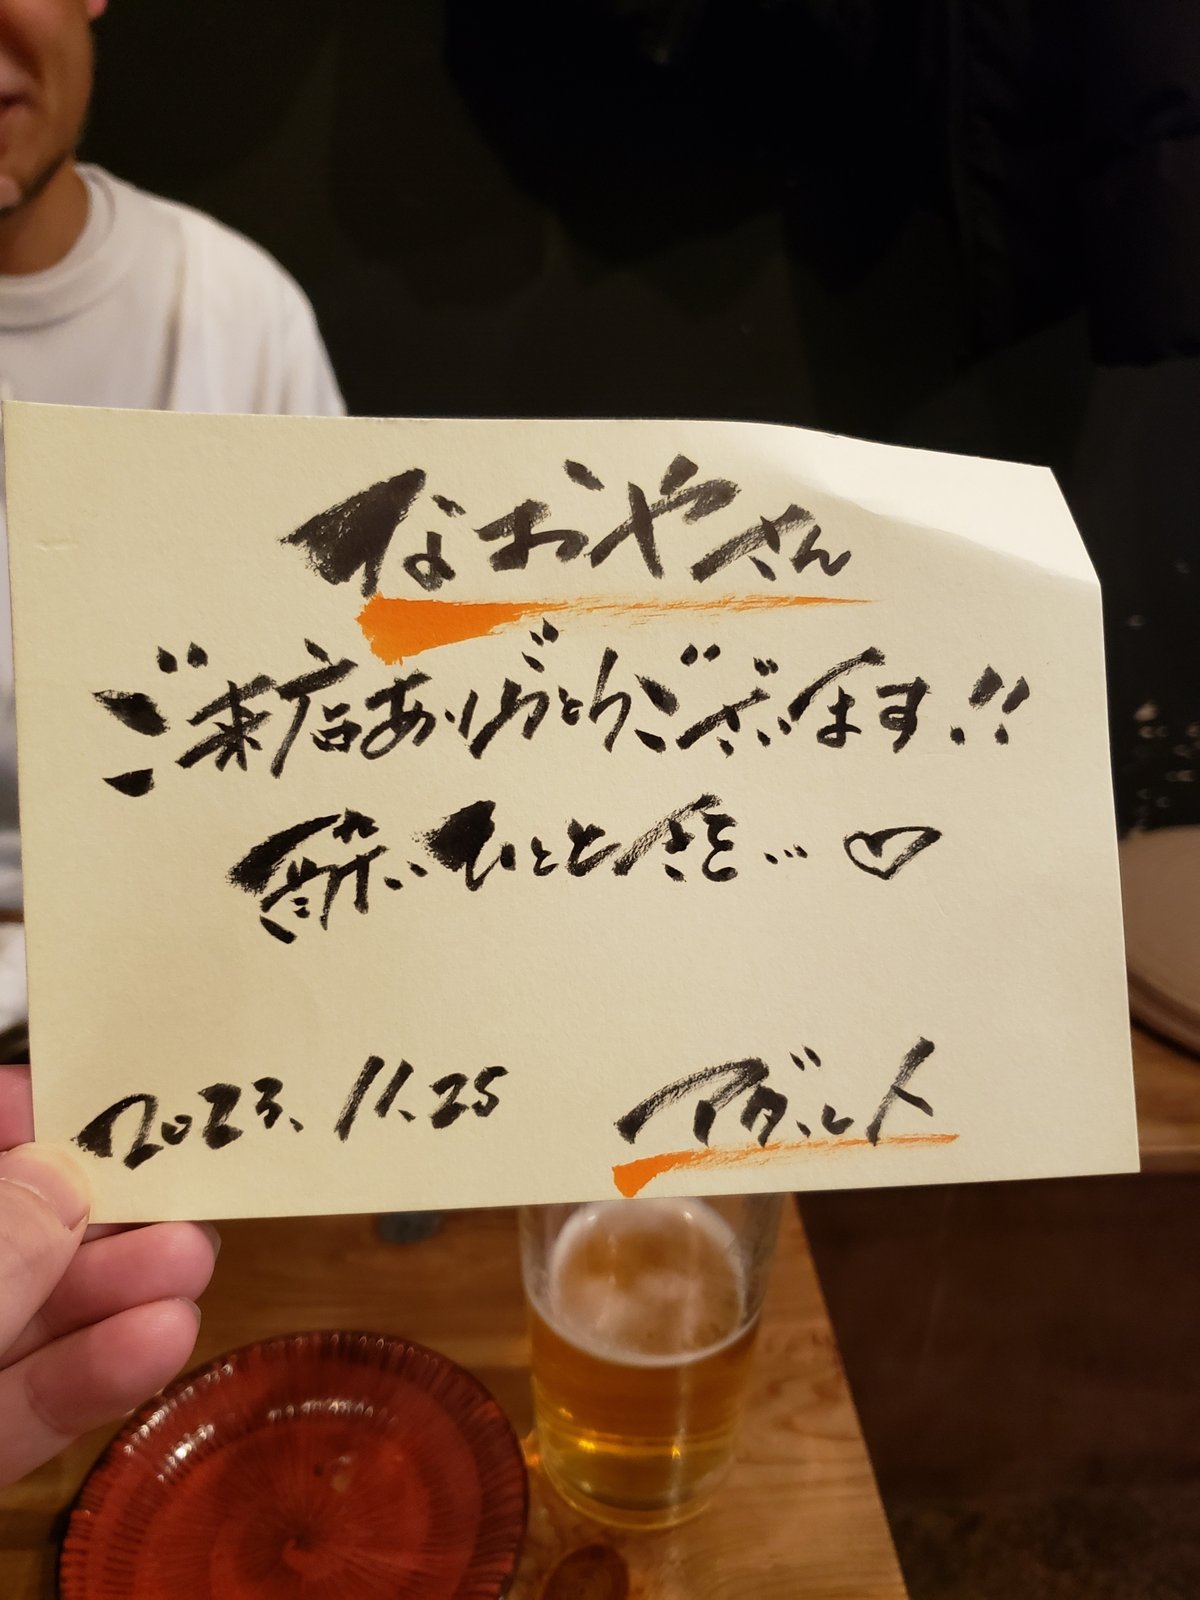 なおやさん
ご来店ありがとうございます!!
酔いひとときを…♡
2023.11.25
アダルト